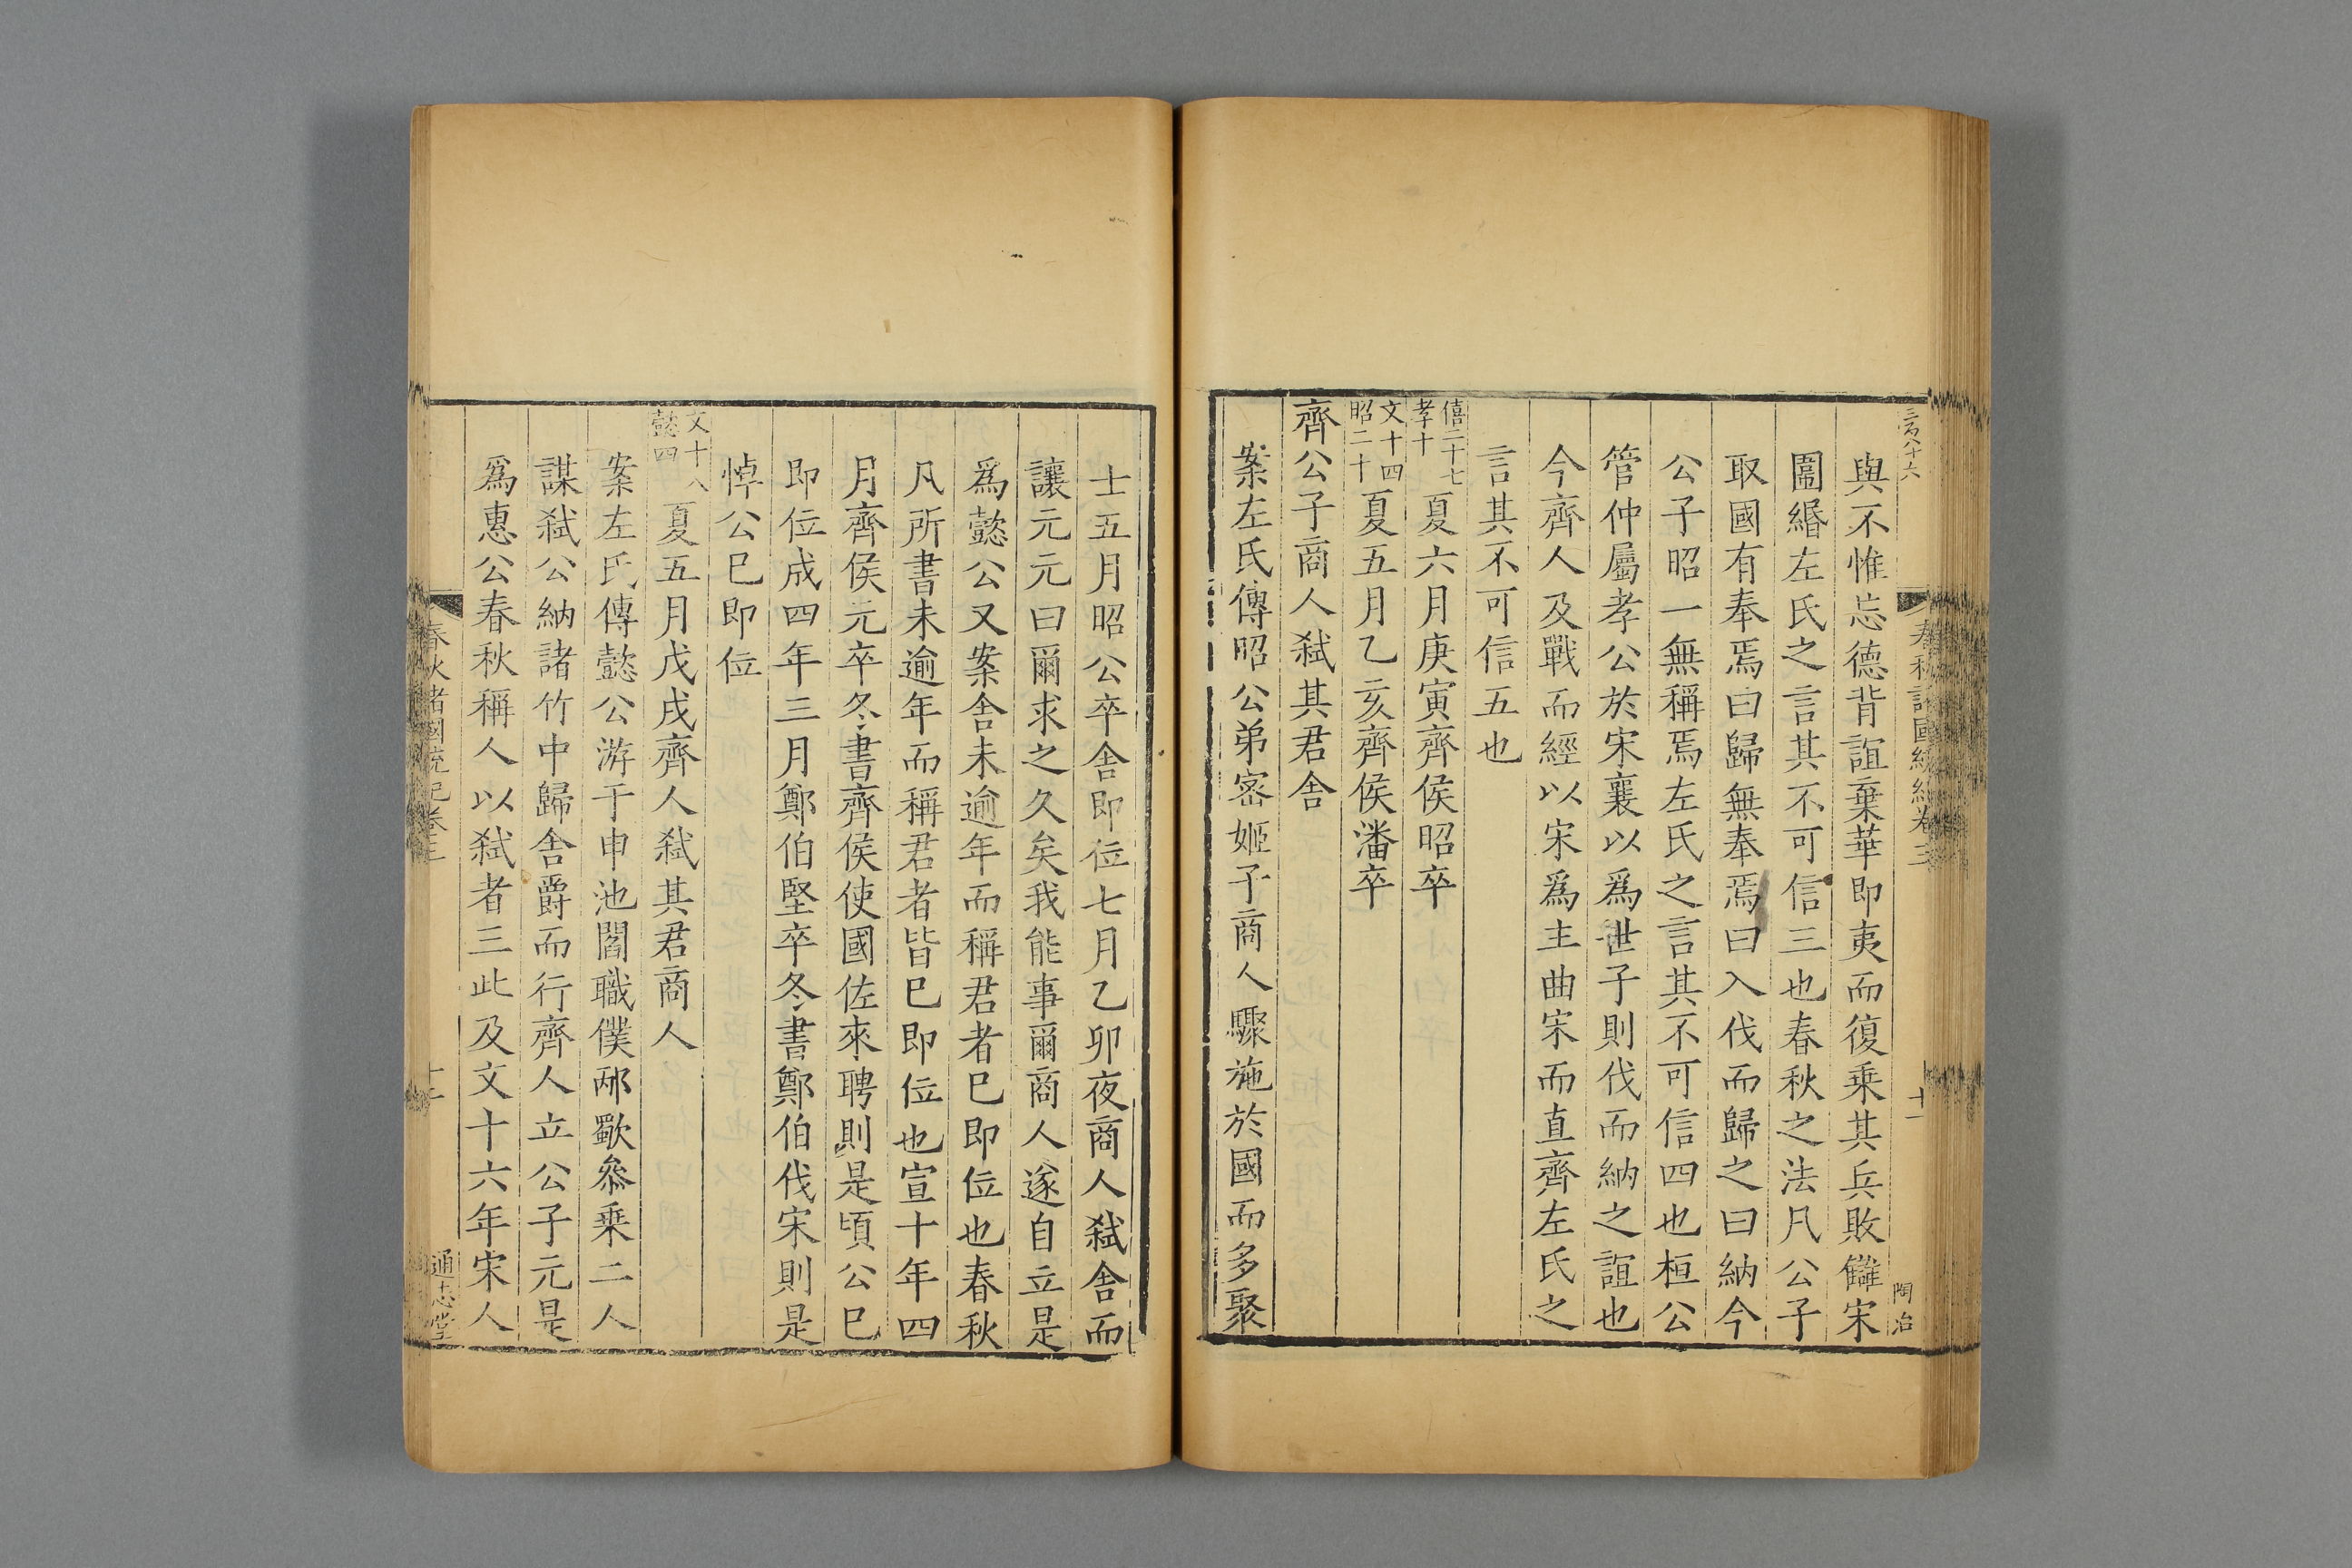 春秋諸國統紀卷三
十一
陶冶
與不惟忘德背誼棄華即夷而復乗其兵敗讎宋
圍緡左氏之言其不可信三也春秋之法凡公子
取國有奉焉曰歸無奉焉曰入伐而歸之曰納今
公子昭一無稱焉左氏之言其不可信四也桓公
管仲屬孝公於宋襄以爲世子則伐而納之誼也
今齊人及戰而經以宋爲主曲宋而直齊左氏之
言其不可信五也
僖二十七
孝十
夏六月庚寅齊侯昭卒
文十四
昭二十
夏五月乙亥齊侯潘卒
齊公子商人弑其君舍
案左氏傳昭公弟密姬子商人驟施於國而多聚
士五月昭公卒舍即位七月乙卯夜商人弑舍而
讓元元曰爾求之久矣我能事爾商人遂自立是
爲懿公又案舍未逾年而稱君者已即位也春秋
凡所書未逾年而稱君者皆已即位也宣十年四
月齊侯元卒冬書齊侯使國佐來聘則是頃公已
即位成四年三月鄭伯堅卒冬書鄭伯伐宋則是
悼公已即位
文十八
懿四
夏五月戊戌齊人弑其君商人
案左氏傳懿公游于申池閻職僕邴歜叅乗二人
謀弑公納諸竹中歸舍爵而行齊人立公子元是
爲惠公春秋稱人以弑者三此及文十六年宋人
春秋諸國統紀卷三
十二
通志堂